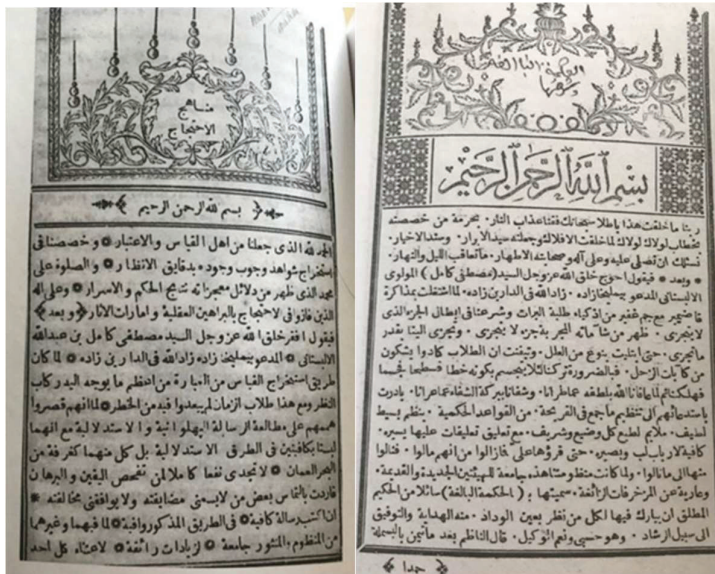 مناهج
الاحتجاج
بسم الله الرحمن الرحيم
الحمد لله الذى جعلنا من اهل القياس والاعتبار وخصصنا فى
استخراج شواهد وجوب وجود بدقايق الانظار والصلوة على
محمد الذى ظهر من دلائل معجزاته نتيج الحكم والاسرار وعلى اله
الذين فازوا فى الاحتجاج بالبراهين العقلية وامارات الاثار وبعد
فيقول افقر خلق الله عز وجل السيد مصطفى كامل بن عبدالله
الالبستانى المدعو بيمليخا زاده زاد الله فى الدارين زاده لما كان
طريق استخراج القياس من العبارة من اعظم ما يوجه اليه ركاب
النظر ومع هذا طلاب ازمان لم يبعدوا فيه من الخطر لما انهم قصروا
هممهم على مطالعة الرسالة البهلوانية والاستدلالية مع انهما
ليستا بكافيتين فى الطرق الاستدلالية بل كل منهما كغرفة من
البحر العمان لا تجدى نفعا كاملا لمن تفحص اليقين والبرهان
فاردت بالتماس بعض من لا يسعنى مضايقته ولا يوافقنى مخالفته
ان اكتب رسالة كافية فى الطريق المذكور وافية لما فيهما وغيرهما
من المنظوم والمنثور جامعة لزيادات رائقة لاعتناء كل احد
بسم الله الرحمن الرحيم
ربنا ما خلقت هذا باطلا سبحانك فقنا عذاب النار بحرمة من خصصته
بخطاب لولاك لولاك لما خلقت الافلاك وجعلته سيد الابرار وسند الاخيار
نسئلك ان تصلى عليه وعلى آله وصحابته الاطهار ما تعاقب الليل والنهار
وبعد فيقول احوج خلق الله عز وجل السيد (مصطفى كامل) المولوى
الالبستانى المدعو بيمليخا زاده زاد الله فى الدارين زاده لما اشتغلت بمذاكرة
قاضيمير مع جم غفير من اذكياء طلبة العرات وشرعنا فى ابطال الجزء الذى
لا يتجزى ظهر من شآماته المنجر بجزء لا يتجزى وتجزى الينا بقدر
ما تجزى حتى ابتليت بنوع من العلل وتيقنت ان الطلاب كادوا يتكون
من كآبات الزحل فبالضرورة تركنا لئلا ينجسم بكونه خطا فسطحا فجسما
فهلكنا ثم لما عافانا الله بلطفه عما طرانا وشفانا ببركة الشفاء عما عرانا بادرت
باستدعائهم الى تنظيم ما جمع فى القريحة من القواعد الحكمية بنظم بسيط
لطيف ملايم لطبع كل وضيع وشريف مع تعليق تعليقات عليها يسيره
كافية لارباب لب وبصيره حتى قروها على فازالوا من افهم مالوا فنالوا
منها الى ما نالوا ولما كانت منظومتنا هذه جامعة للهيئتين الجديدة والقديمة
وعارية عن المزخرفات الزائفة سميتها بـ (الحكمة البالغة) سائلا من الحكيم
المطلق ان يبارك فيها لكل من نظر بعين الوداد منه الهداية والتوفيق
الى سبيل ارشاد وهو حسبى ونعم الوكيل قال الناظم بعد ما تيمن بالبسملة
حمدا